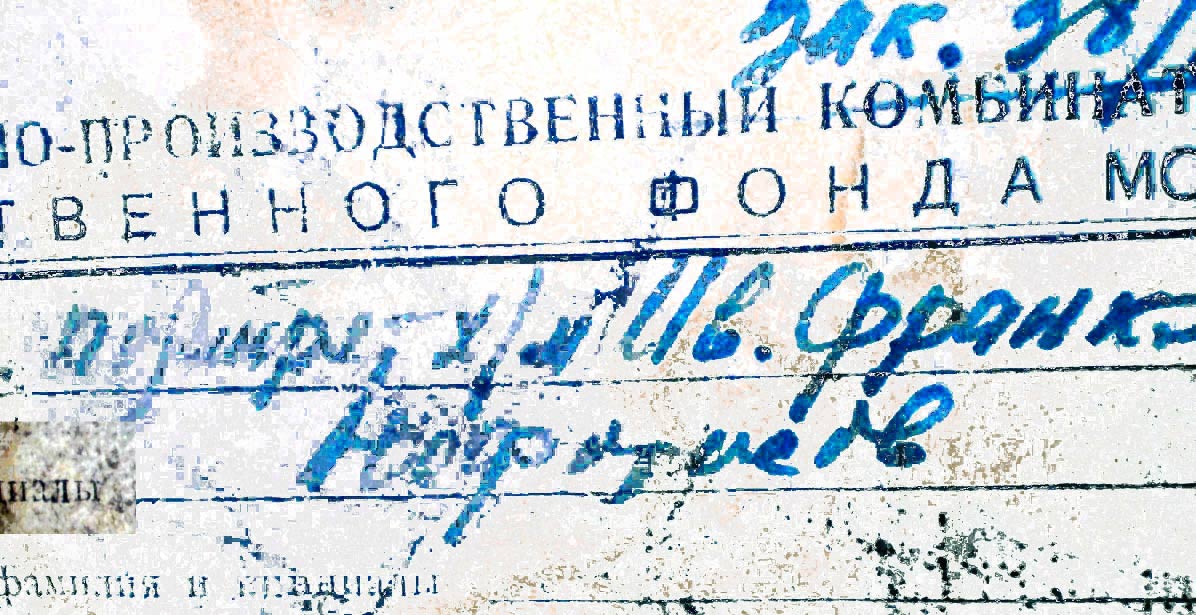 зак. 38/
НО-ПРОИЗВОДСТВЕННЫЙ КОМБИНАТ
ТВЕННОГО ФОНДА МО
портрет х/м Ив. Франк
циалы
фамилия и инициалы